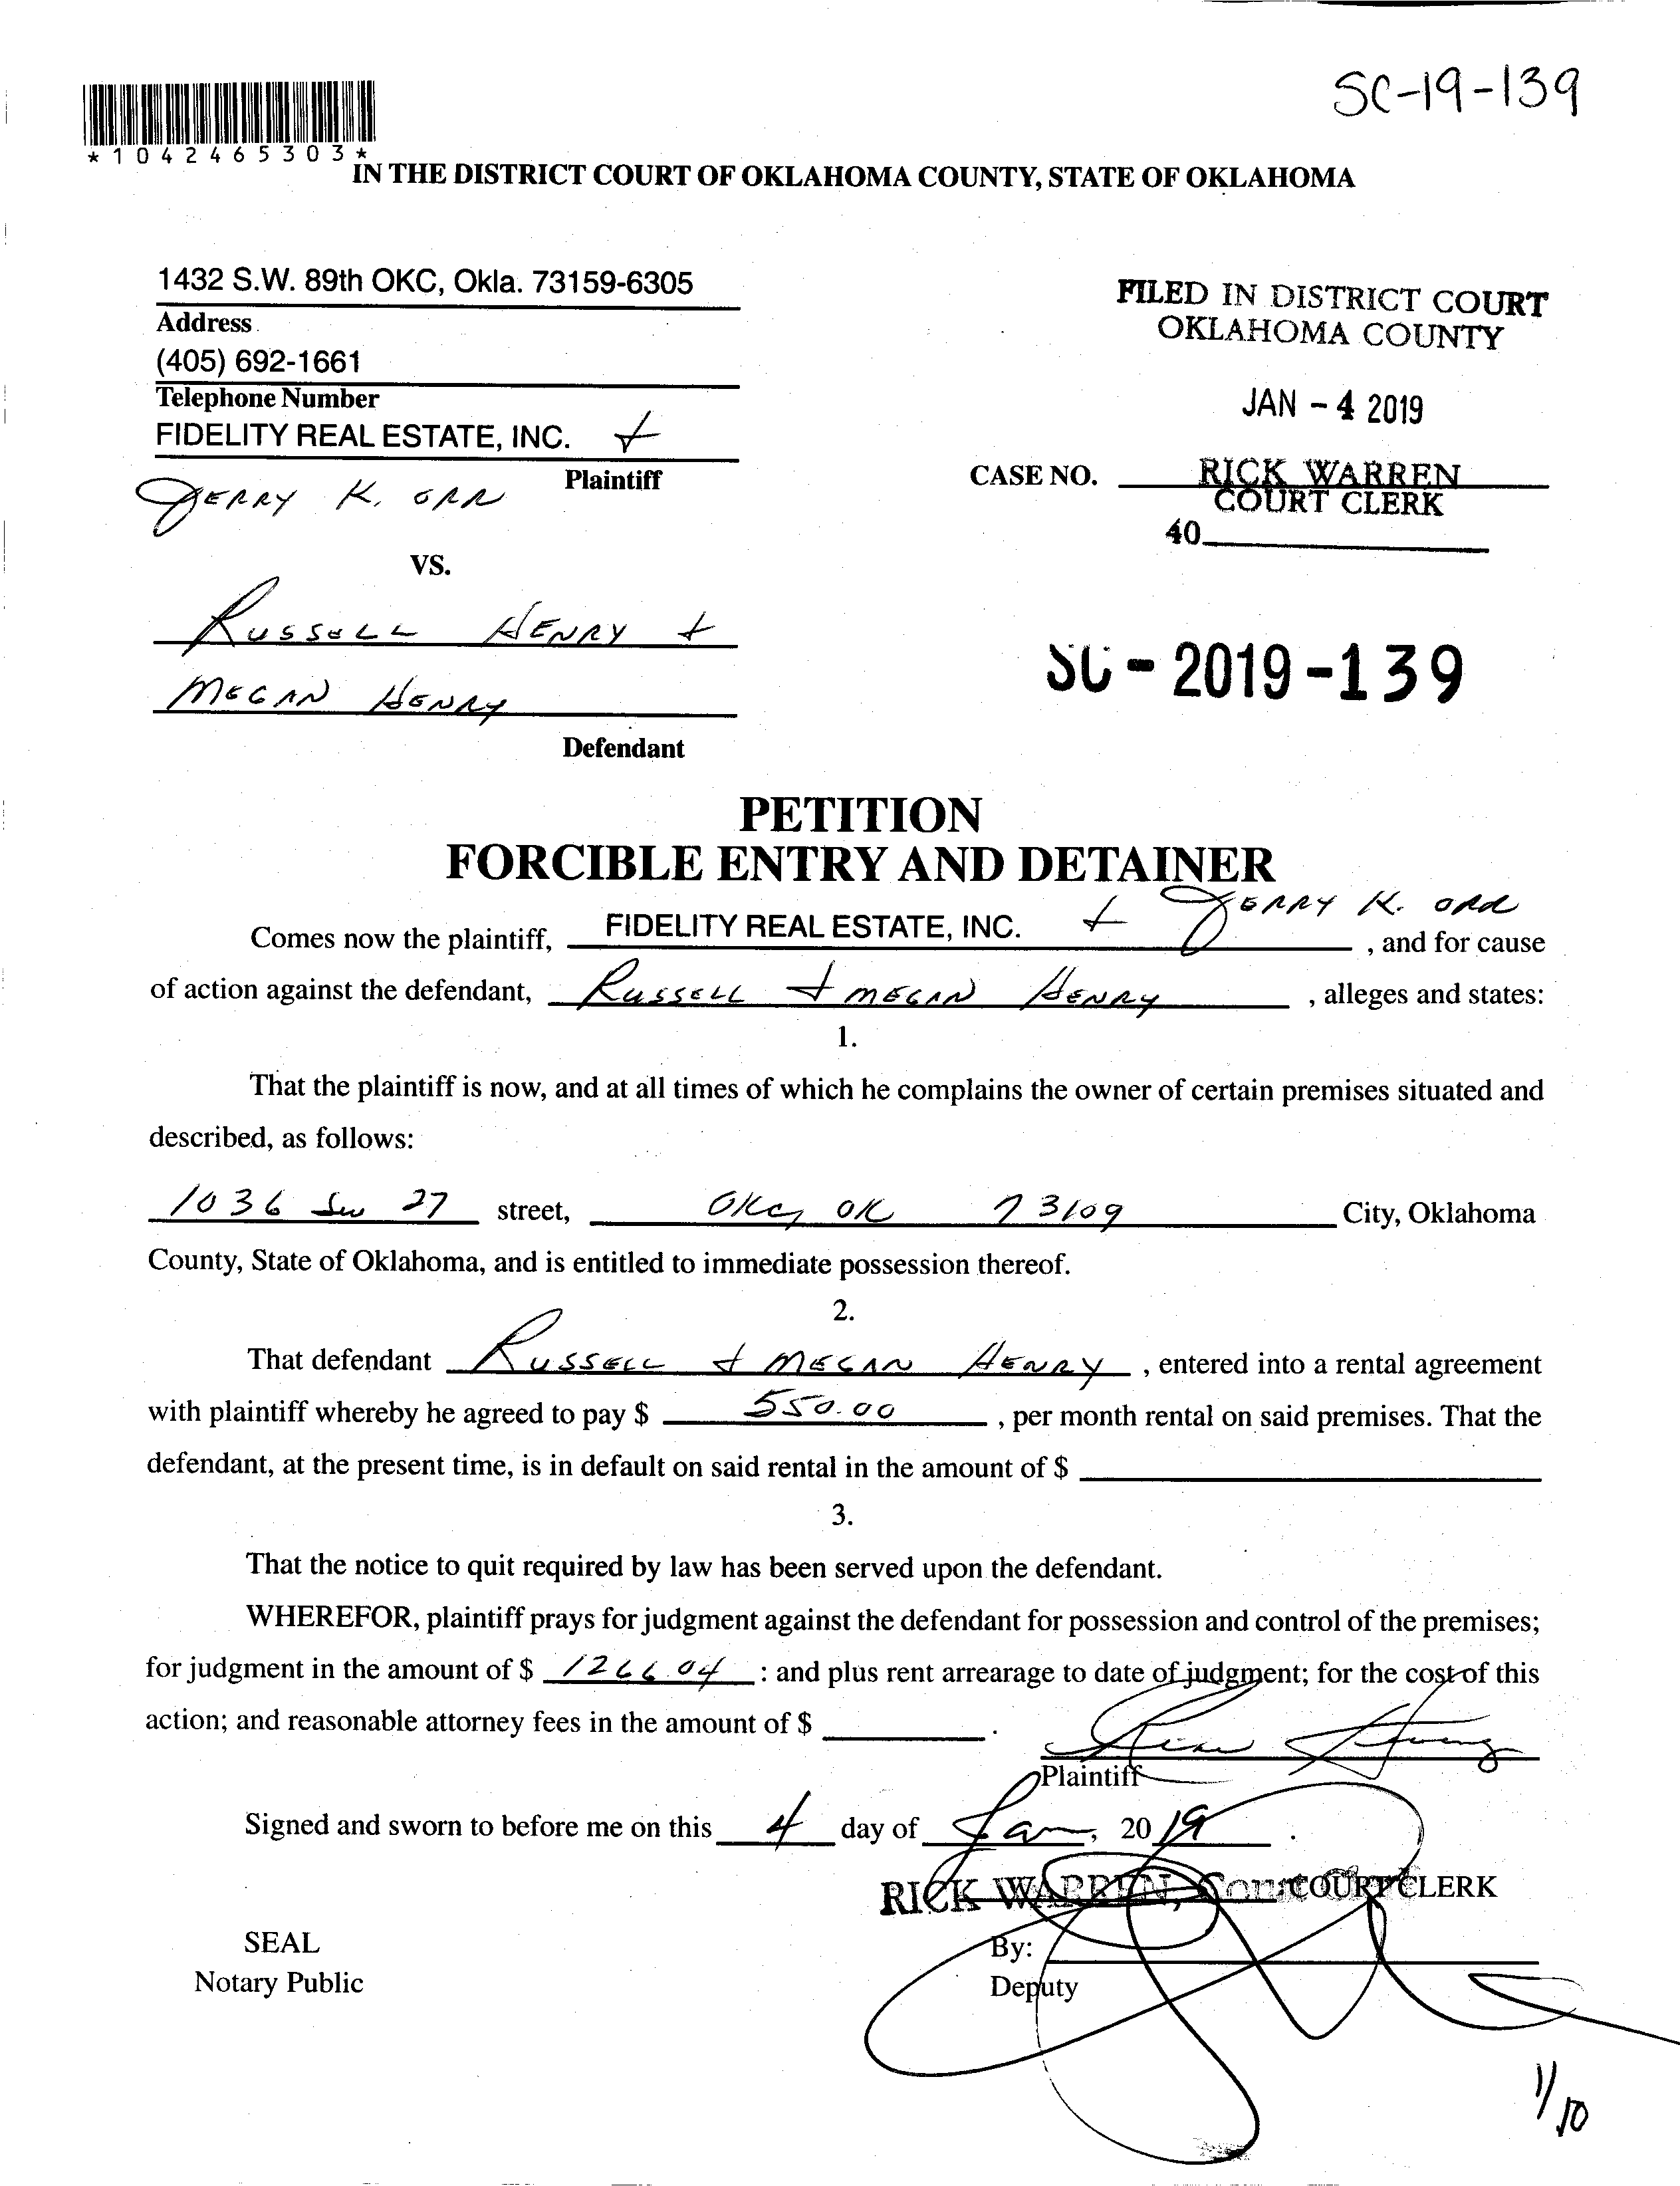 SC-19-139
*1042465303*
IN THE DISTRICT COURT OF OKLAHOMA COUNTY, STATE OF OKLAHOMA
1432 S.W. 89th OKC, Okla. 73159-6305
Address
(405) 692-1661
Telephone Number
FIDELITY REAL ESTATE, INC. +
Plaintiff
JERRY K. ORR
VS.
RUSSELL HENRY +
MEGAN HENRY
Defendant
FILED IN DISTRICT COURT
OKLAHOMA COUNTY
JAN - 4 2019
CASE NO. RICK WARREN
COURT CLERK
40
SC - 2019 - 139
PETITION
FORCIBLE ENTRY AND DETAINER
Comes now the plaintiff, FIDELITY REAL ESTATE, INC. + JERRY K. ORR , and for cause
of action against the defendant, RUSSELL + MEGAN HENRY , alleges and states:
1.
That the plaintiff is now, and at all times of which he complains the owner of certain premises situated and
described, as follows:
1036 SW 27 street, OKC, OK 73109 City, Oklahoma
County, State of Oklahoma, and is entitled to immediate possession thereof.
2.
That defendant RUSSELL + MEGAN HENRY , entered into a rental agreement
with plaintiff whereby he agreed to pay $ 550.00 , per month rental on said premises. That the
defendant, at the present time, is in default on said rental in the amount of $
3.
That the notice to quit required by law has been served upon the defendant.
WHEREFOR, plaintiff prays for judgment against the defendant for possession and control of the premises;
for judgment in the amount of $ 1266.04 : and plus rent arrearage to date of judgment; for the cost of this
action; and reasonable attorney fees in the amount of $ .
Plaintiff
Signed and sworn to before me on this 4 day of Jan, 2019 .
RICK WARREN, Court COURT CLERK
SEAL
Notary Public
By:
Deputy
1/10